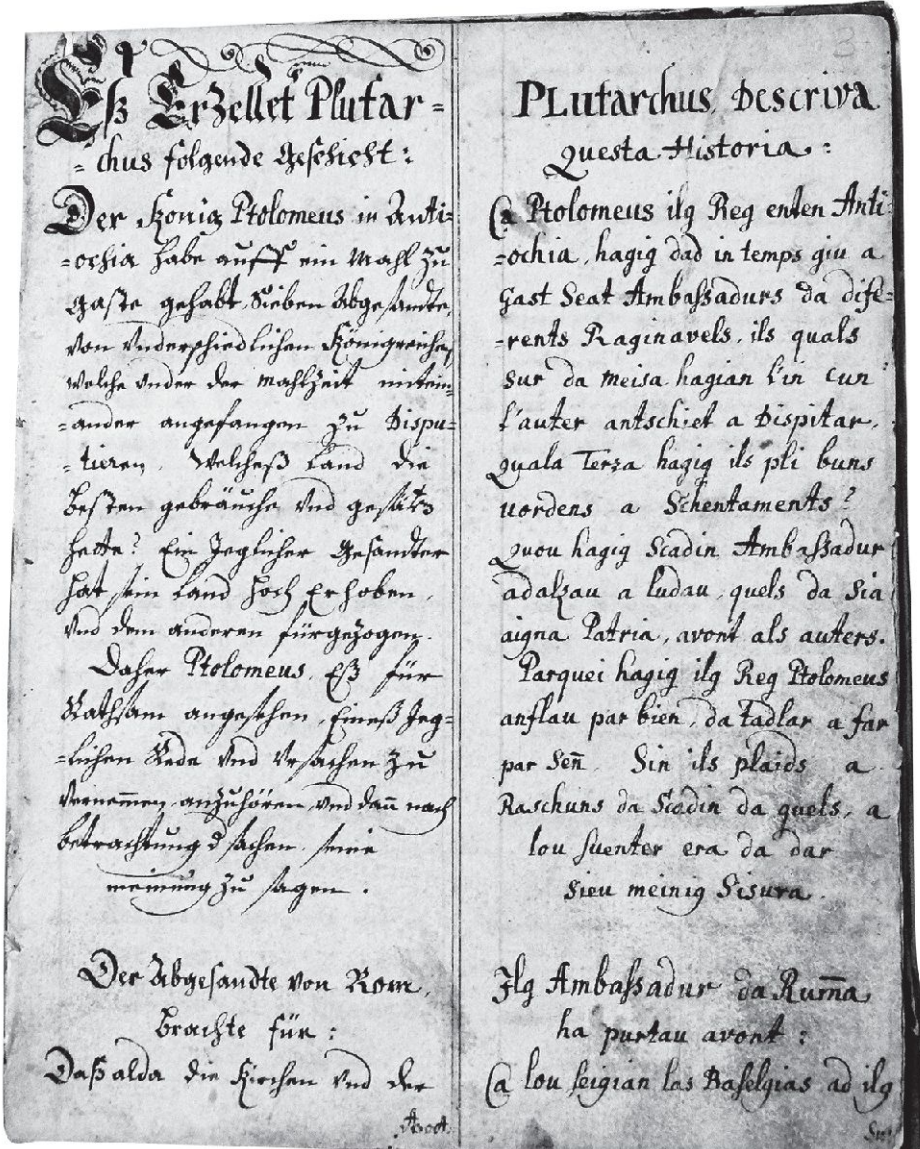 3
Eß Erzellet Plutar=
=chus folgende Geschicht:
Der König Ptolomeus in Anti=
=ochia habe auff ein Mahl zu
Gaste gehabt Sieben Abgesandte,
von Vnderschiedlichen Königreichen,
welche vnder der mahlzeit mitein=
=ander angefangen zu Dispu=
=tieren. Welcheß Land die
besten gebräuche vnd gesätz
hette? Ein Jeglicher Gesandter
hat sein Land hoch Erhoben,
vnd dem anderen fürgezogen.
Daher Ptolomeus, Eß für
Rathsam angesehen, Eineß Jeg=
=lichen Rede vnd Vrsachen zu
Vernemmen, anzuhören, vnd dann nach
betrachtung d sachen, seine
meinung zu sagen.
Der Abgesandte von Rom,
brachte für:
Daß alda die Kirchen vnd der
PLutarchus, Descriva
Questa Historia:
Ca Ptolomeus ilg Reg enten Anti=
=ochia, hagig dad in temps giu a
Gast Seat Ambaßadurs da dife=
=rents Raginavels, ils quals
sur da meisa hagian l'in cun
l'auter antschiet a Dispitar,
Quala Terza hagig ils pli buns
uordens a Schentaments?
Quou hagig Scadin Ambaßadur
adalzau a ludau, quels da Sia
aigna Patria, avont als auters.
Parquei hagig ilg Reg Ptolomeus
anflau par bien, da tadlar a far
par Señ. Sin ils plaids a
Raschuns da Scadin da quels, a
lou suenter era da dar
sieu meinig Sisura.
Ilg Ambaßadur da Rum̄a
ha purtau avont:
Ca lou seigian las Baselgias ad ilg